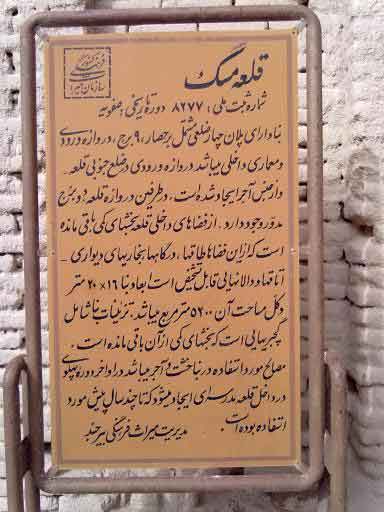 سازمان میراث
قلعه مسک
شماره ثبت ملی: ۸۲۷۷ دوره تاریخی: صفویه
بنا دارای پلان چهارضلعی مشتمل بر حصار، ۹ برج، دروازه ورودی
و معماری داخلی میباشد دروازه ورودی در ضلع جنوبی قلعه
واز جنس آجر ایجاد شده است، در طرفین دروازه قلعه دو برج
مدور وجود دارد. از فضاهای داخلی قلعه بخشهای کمی باقی مانده
است که از این فضاها طاقنما، درگاهها بخاریهای دیواری -
اتاقها و دالانهایی قابل تشخیص است ابعاد بنا ۱۶×۲۰ متر
وکل مساحت آن ۵۲۰۰ مترمربع میباشد. تزئینات بنا شامل
گچبریهایی است که بخشهای کمی از آن باقی مانده است.
مصالح مورد استفاده در بنا خشت و آجر میباشد در اواخر دوره پهلوی
در داخل قلعه مدرسه ای ایجاد میشود که تا چند سال پیش مورد
استفاده بوده است.
مدیریت میراث فرهنگی بیرجند